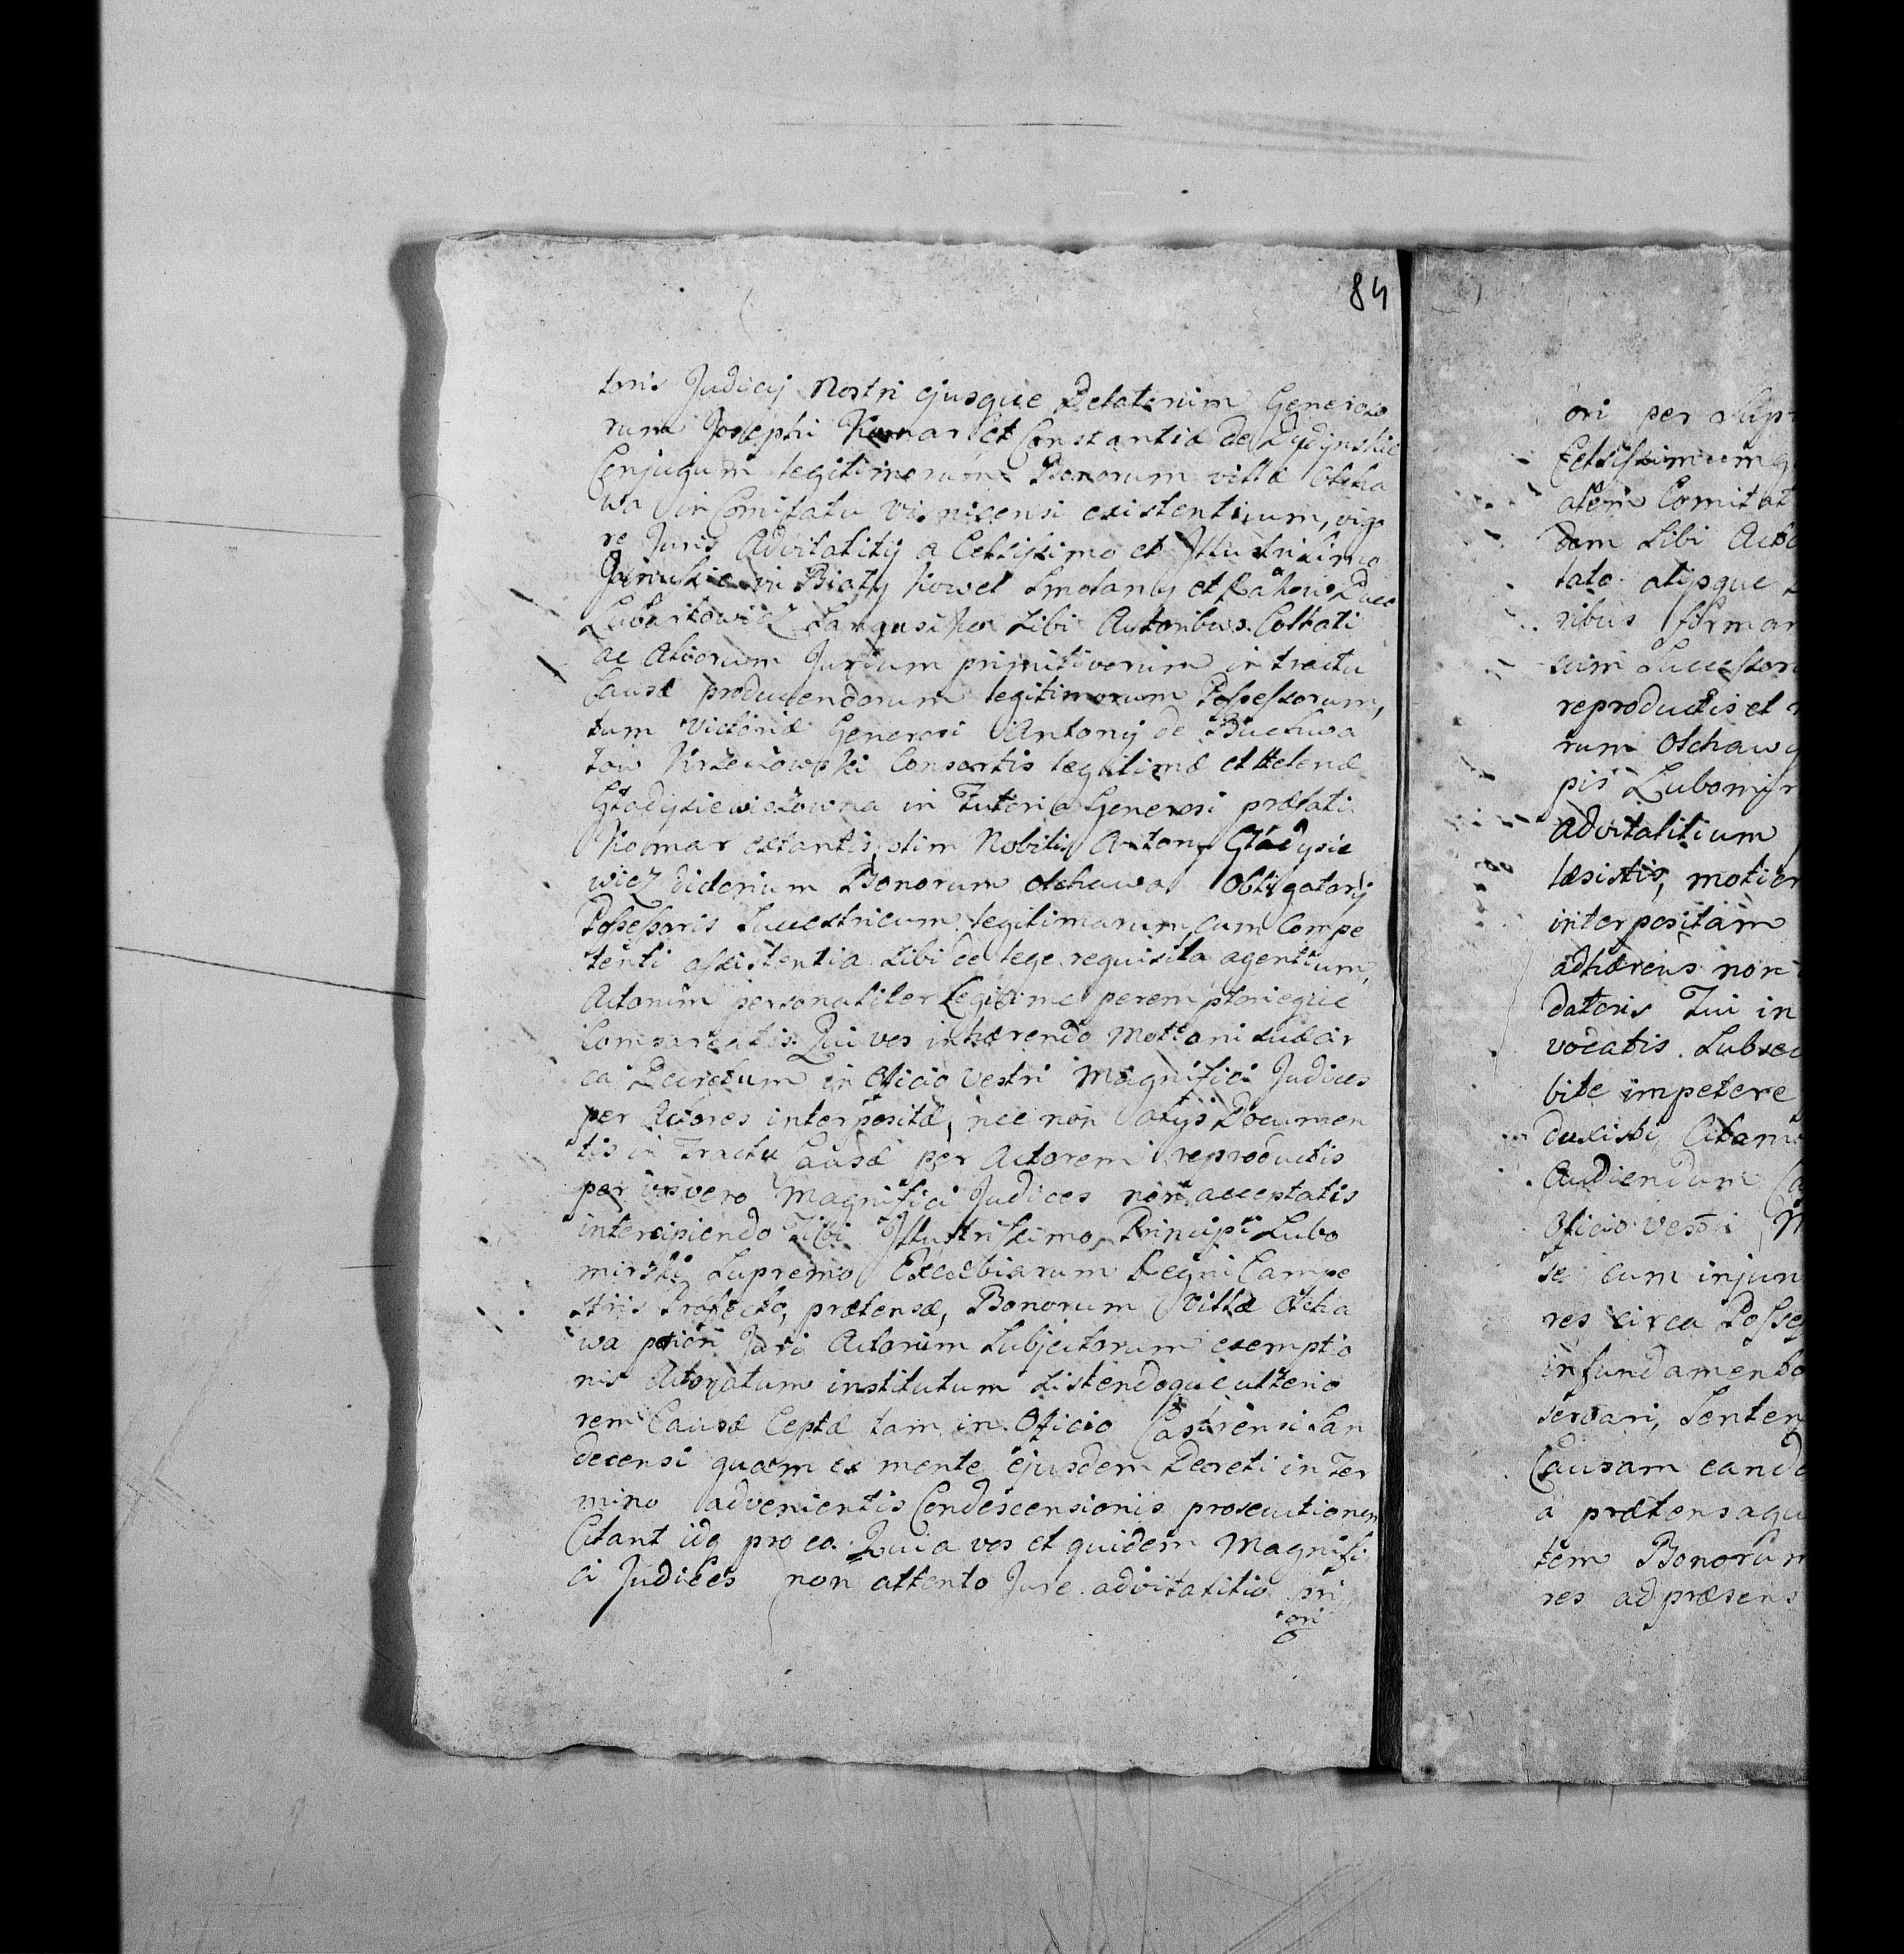 84
toris Judicij Nostri ejusque Delatorum Generoso
rum Josephi Komar et Constantiæ de Dydynskie
Conjugum legitimorum Bonorum villæ Olcha
wa in Comitatu Visnicensi existentium, vigo
re Juris Advitalitij a Celsissimo et Illustrissimo
Januskie in Biały Kowel Smolany et Rakow Duce
Lubartowicz Sangusiko sibi Actoribus Collati
ac Aliorum Jurium primitivorum in tractu
Causæ producendorum legitimorum Possessorum,
tum Victoriæ Generosi Antonij de Buchwa
tow Krzeczowski Consortis legitimæ et Helenæ
Gładysiewiczowna in Tutoria Generosi prælati
Komar extantis, olim Nobilis Antony Gładysie
wicz dictorum Bonorum Olchawa Obligatorij
Possessoris Successricum legitimarum, cum Compe
tenti assistentia sibi de lege requisita agentium,
Actorum personaliter Legitime peremptorieque
Compareatis. Qui vos inhærendo Motioni suæ cir
ca Decretum in Oficio Vestri Magnifici Judices
per Actores interpositæ, nec non alys Documen
tis in Tractu Causæ per Actorem reproductis
per vos vero Magnifici Judices non acceptatis
intercipiendo Tibi Illustrissimo Principi Lubo
mirski Supremo Excubiarum Regni Campe
stris Præfecto, prætensæ, Bonorum Villæ Olcha
wa priori Juri Actorum Subjectorum exemptio
nis Actoratum institutum sistendoque ulterio
rem Causæ Ceptæ tam in Oficio Castrensi San
decensi quam ex mente ejusdem Decreti in Ter
mino advenientis Condescensionis prosecutionem
Citant idq pro eo. Quia vos et quidem Magnifi
ci Judices non attento Jure advitalitio pri
ori
ori per Sup
Celsissimum q
atem Comitat
dem sibi Acto
tato alijsque
ribus forma
suim Successor
reproductis et
rum Olchawa
pis Lubomir
advitalitium
læsistis, motion
interpositam
adhærens non
datoris Tui in
vocatis. Subse
bite impetere
duxisti
Audiendum
Oficio vestri
se cum injun
res circa Posse
in fundamento
servari, Senten
Causam eand
a prætensaqu
tem Bonorum
res ad præsens